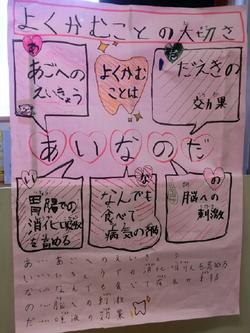 よくかむことの大切さ
あ
あごへの
えいきょう
よくかむ
ことは
だ
だえきの
効果
あいなのだ
い
胃腸での
消化吸収
を高める
な
なんでも
食べて
病気の予防
の
脳への
刺激
あ…あごへのえいきょう
い…いちょうでの消化吸収を高める
な…なんでも食べて病気の予防
の…脳への刺激
だ…唾液の効果